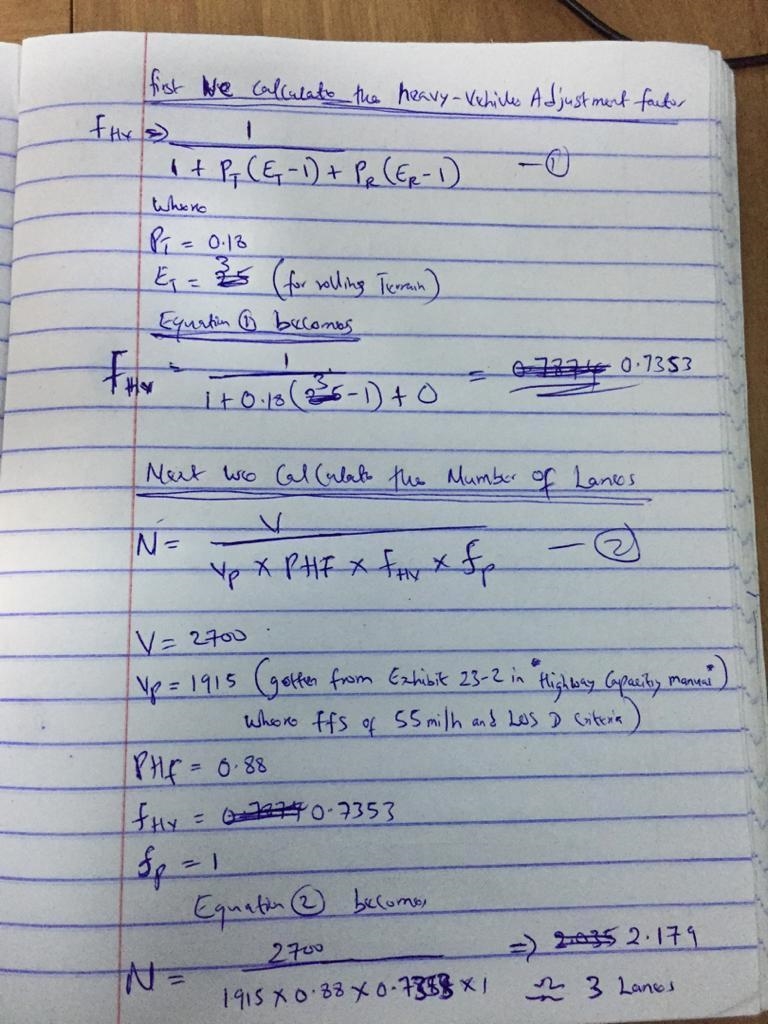 first We Calculate the heavy-Vehicles Adjustment factor
f_HV => 1 / (1 + P_T (E_T - 1) + P_R (E_R - 1)) — ①
where
P_T = 0.18
E_T = 3 (for rolling Terrain)
Equation ① becomes
F_HV = 1 / (1 + 0.18 (3 - 1) + 0) = 0.7353
Next we Calculate the Number of Lanes
N = V / (Vp × PHF × f_HV × f_p) — ②
V = 2700
Vp = 1915 (gotten from Exhibit 23-2 in "Highway Capacity manual"
where ffs of 55mi/h and LOS D criteria)
PHf = 0.88
f_HV = 0.7353
f_p = 1
Equation ② becomes,
N = 2700 / (1915 × 0.88 × 0.7353 × 1) => 2.179
≈ 3 Lanes